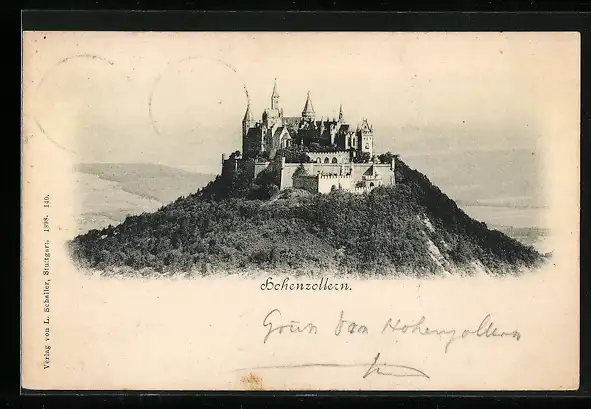 Verlag von L. Schaller, Stuttgart. 1898. 140.
Hohenzollern.
Hohenzollern